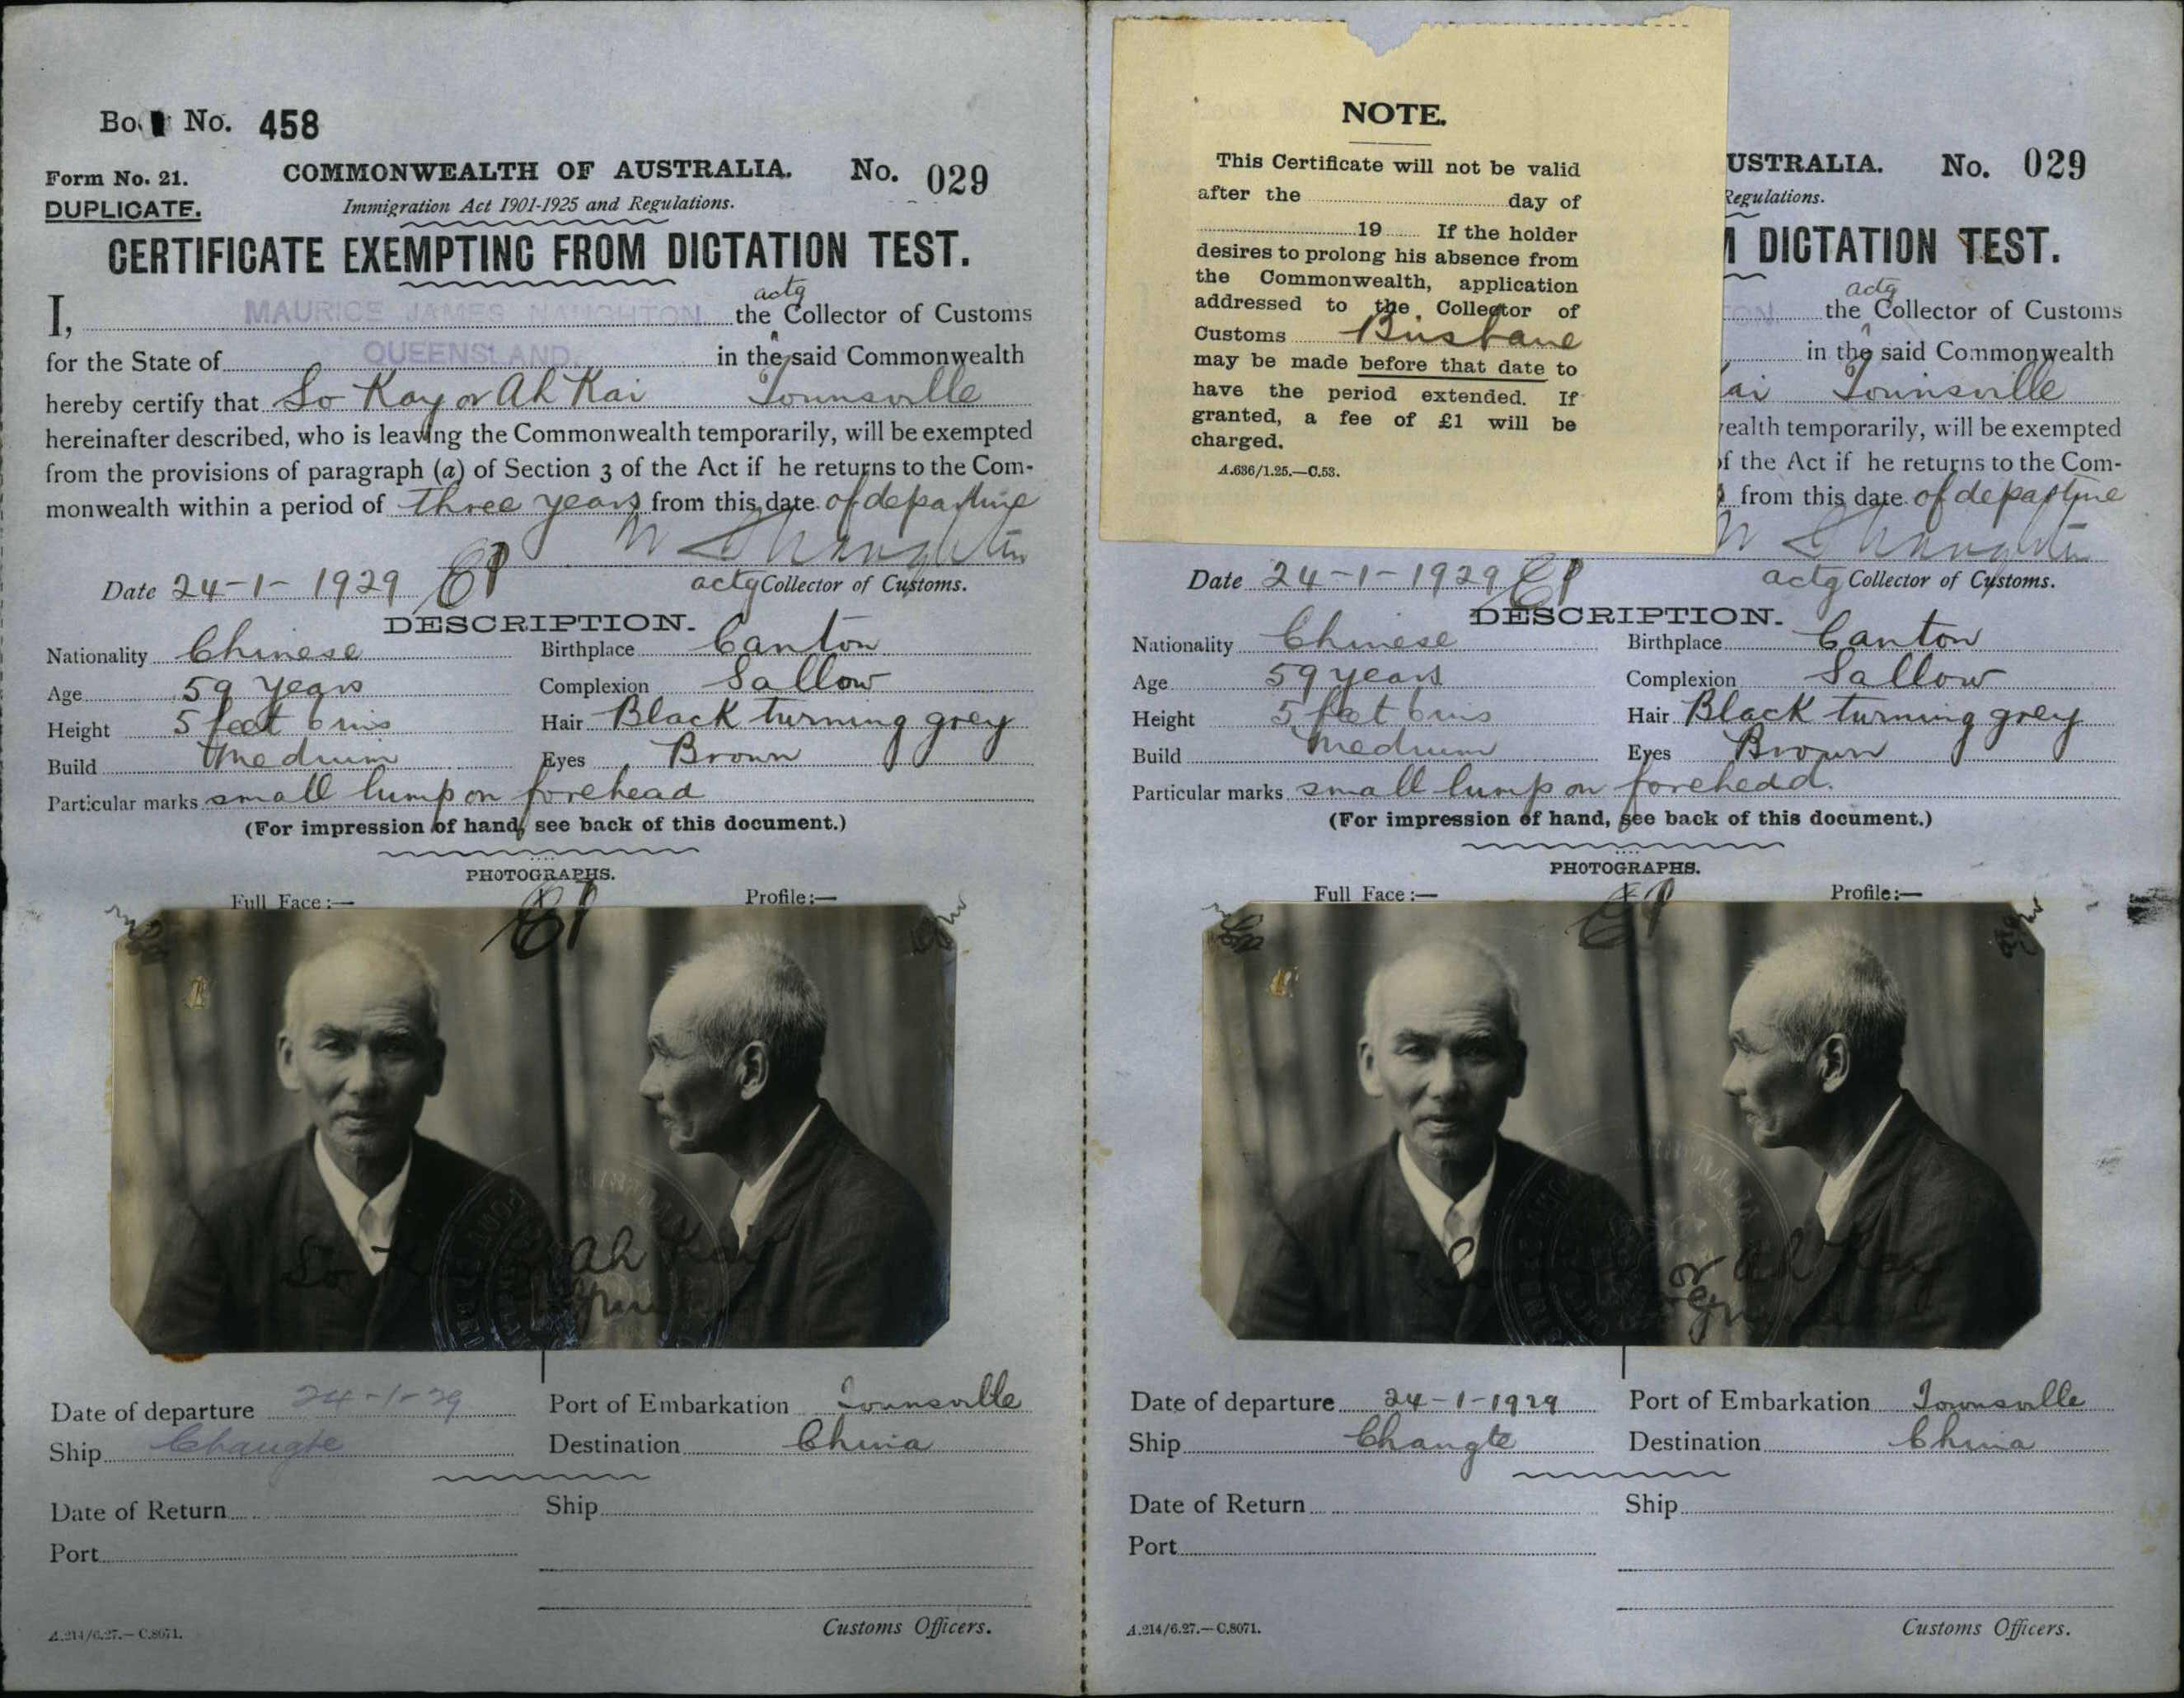 No. 458
Form No. 21.
DUPLICATE.
COMMONWEALTH OF AUSTRALIA.
No. 029
Immigration Act 1901-1925 and Regulations.
CERTIFICATE EXEMPTING FROM DICTATION TEST.
I, MAURICE JAMES NAUGHTON the actg Collector of Customs
for the State of QUEENSLAND. in the said Commonwealth
hereby certify that So Kay or Ah Kai Townsville
hereinafter described, who is leaving the Commonwealth temporarily, will be exempted
from the provisions of paragraph (a) of Section 3 of the Act if he returns to the Com-
monwealth within a period of three years from this date of departure
Date 24-1-1929
actg Collector of Customs.
DESCRIPTION.
Nationality Chinese Birthplace Canton
Age 59 years Complexion Sallow
Height 5 feet 6 ins Hair Black turning grey
Build Medium Eyes Brown
Particular marks small lump on forehead
(For impression of hand, see back of this document.)
PHOTOGRAPHS.
Full Face:— Profile:—
So Ah Kai
Date of departure 24-1-29 Port of Embarkation Townsville
Ship Changte Destination China
Date of Return Ship
Port
Customs Officers.
A.214/6.27.—C.8071.
NOTE.
This Certificate will not be valid
after the day of
19 If the holder
desires to prolong his absence from
the Commonwealth, application
addressed to the Collector of
Customs Brisbane
may be made before that date to
have the period extended. If
granted, a fee of £1 will be
charged.
A.636/1.25.—C.53.
USTRALIA. No. 029
Regulations.
DICTATION TEST.
the actg Collector of Customs
in the said Commonwealth
ai Townsville
ealth temporarily, will be exempted
of the Act if he returns to the Com-
from this date of departure
Date 24-1-1929
actg Collector of Customs.
DESCRIPTION.
Nationality Chinese Birthplace Canton
Age 59 years Complexion Sallow
Height 5 feet 6 ins Hair Black turning grey
Build Medium Eyes Brown
Particular marks small lump on forehead.
(For impression of hand, see back of this document.)
PHOTOGRAPHS.
Full Face:— Profile:—
or Ah Kai
Date of departure 24-1-1929 Port of Embarkation Townsville
Ship Changte Destination China
Date of Return Ship
Port
Customs Officers.
A.214/6.27.—C.8071.